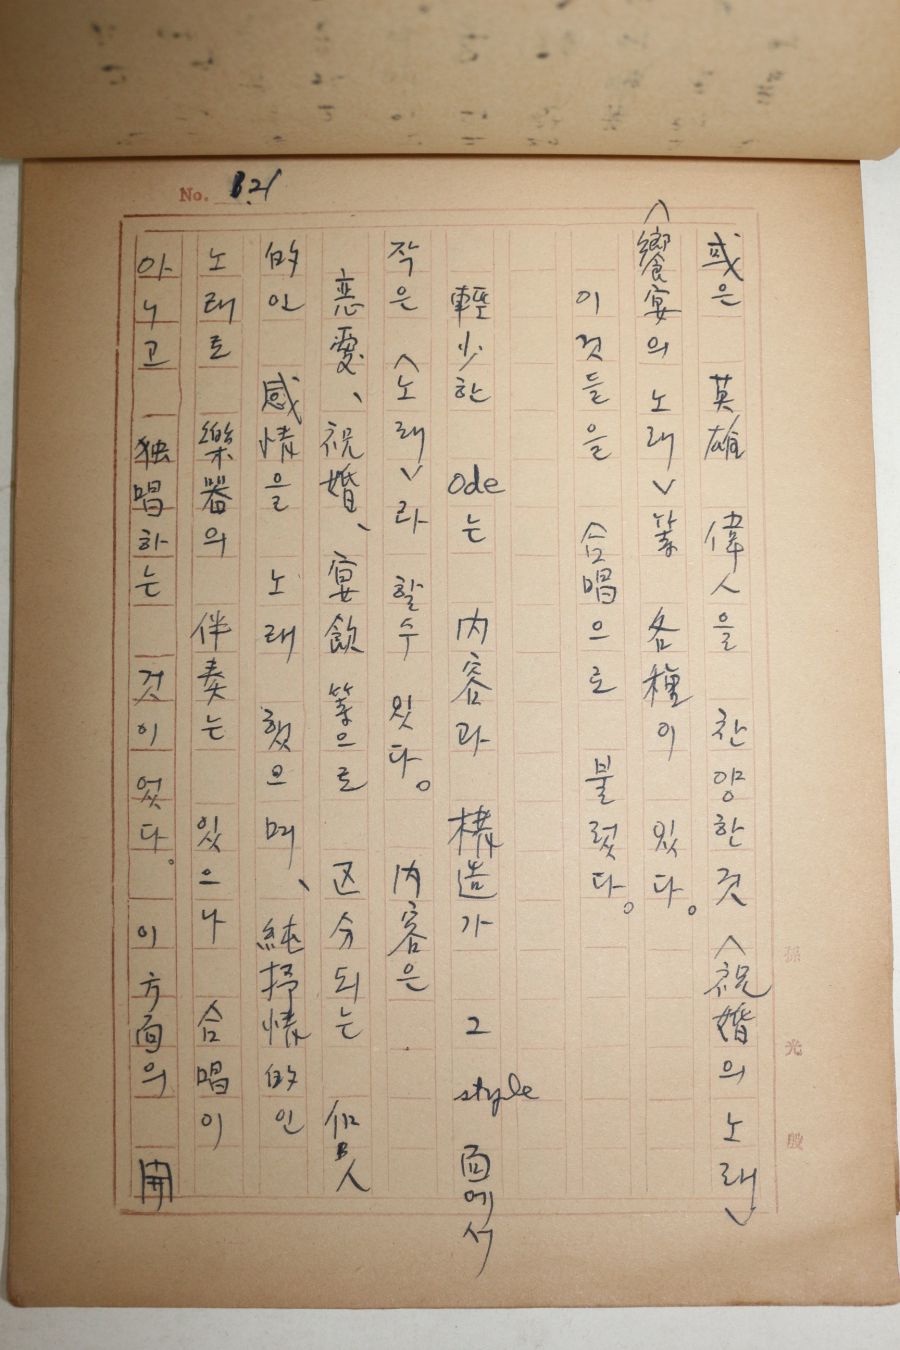 No. 121
或은 英雄 偉人을 찬양한 것 〈祝婚의 노래〉
〈饗宴의 노래〉 等 各種이 있다。
이것들을 合唱으로 불렀다。
輕少한 Ode는 内容과 構造가 그 style 面에서
작은 〈노래〉라 할수 있다。 内容은
恋愛、祝婚、宴飮 等으로 区分되는 個人
的인 感情을 노래 했으며、純抒情的인
노래로 樂器의 伴奏는 있으나 合唱이
아니고 独唱하는 것이었다。 이 方面의 開
孫光殷